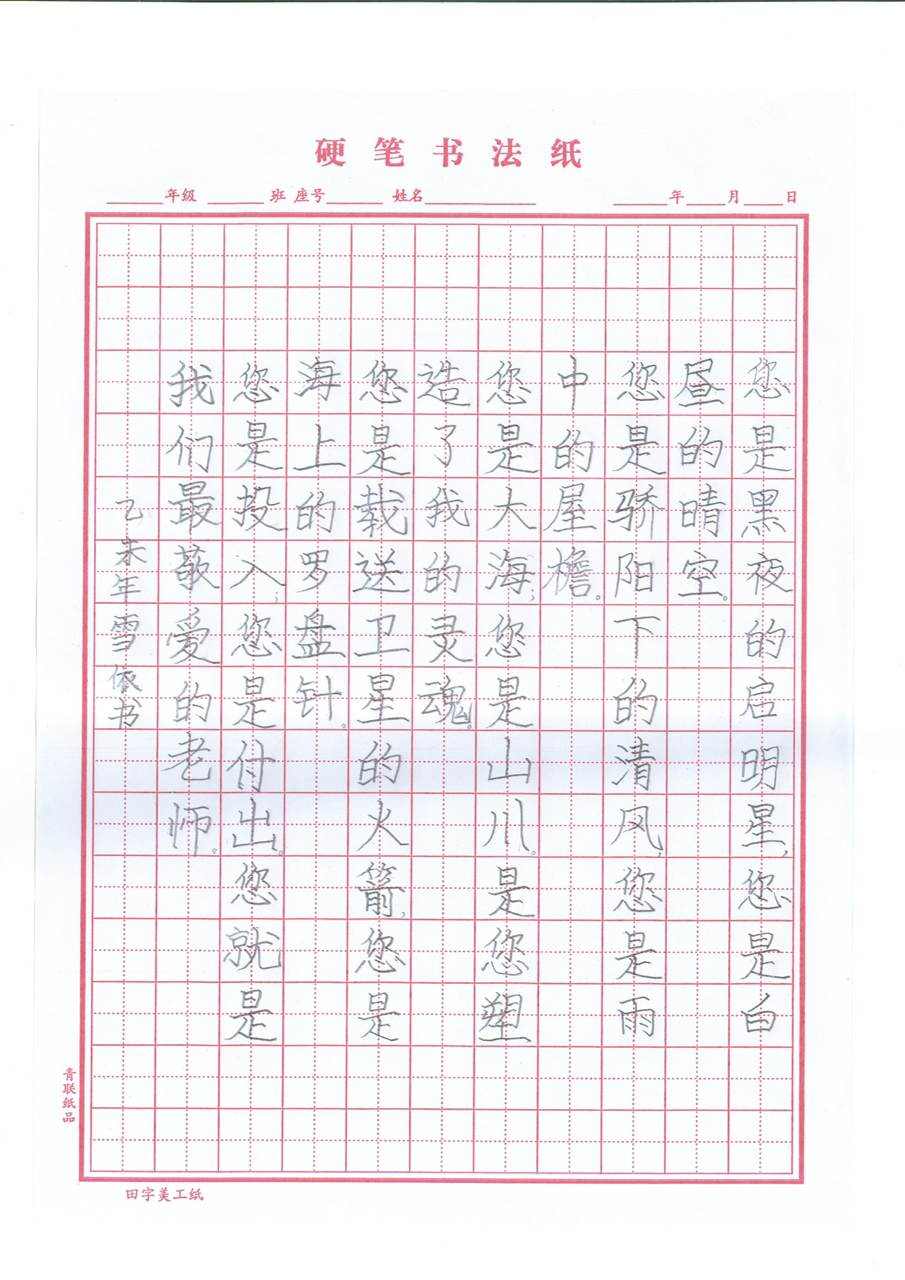 硬笔书法纸
年级 班 座号 姓名 年 月 日
您是黑夜的启明星,您是白
昼的晴空。
您是骄阳下的清风,您是雨
中的屋檐。
您是大海;您是山川。是您塑
造了我的灵魂。
您是载送卫星的火箭,您是
海上的罗盘针。
您是投入;您是付出。您就是
我们最敬爱的老师。
乙未年雪依书
青联纸品
田字美工纸